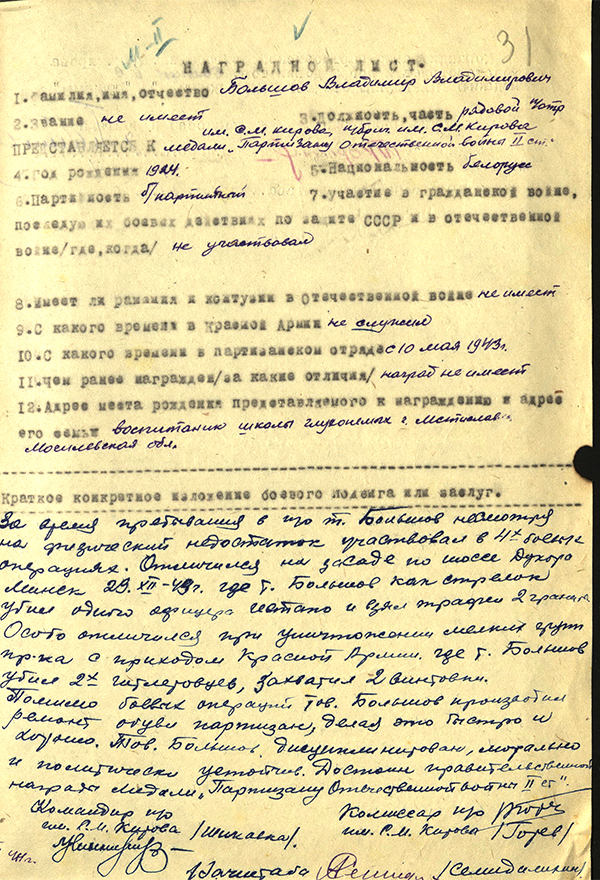 31
НАГРАДНОЙ ЛИСТ.
1.Фамилия,имя,отчество Большов Владимир Владимирович
2.Звание не имеет 3.Должность,часть рядовой
им. С.М. Кирова, им. С.М. Кирова
ПРЕДСТАВЛЯЕТСЯ К медали „Партизану Отечественной войны II ст.
4.Год рождения 1924. 5.Национальность белорус
6.Партийность б/партийный 7.участие в гражданской войне,
последующих боевых действиях по защите СССР и в отечественной
войне/где,когда/ не участвовал
8.Имеет ли ранения и контузии в Отечественной войне не имеет
9.С какого времени в Красной Армии не служил
10.С какого времени в партизанском отряде с 10 мая 1943г.
11.Чем ранее награжден/за какие отличия/ наград не имеет
12.Адрес места рождения представляемого к награждению и адрес
его семьи воспитаник школы глухонемых г. Мстиславь
Могилевская обл.
Краткое конкретное изложение боевого подвига или заслуг.
За время пребывания в п/о т. Большов несмотря
на физический недостаток участвовал в 4х боевых
операциях. Отличился на засаде по шоссе Дукора
Минск 29.XII-43г. где т. Большов как стрелок
убил одного офицера гестапо и взял трофеи 2 гранаты
Особо отличился при уничтожении мелких групп
пр-ка с приходом Красной Армии. где т. Большов
убил 2х гитлеровцев, захватил 2 винтовки.
Помимо боевых операций тов. Большов производил
ремонт обуви партизан, делая это быстро и
хорошо. Тов. Большов. дисциплинирован, морально
и политически устойчив. Достоин правительственной
награды медали „Партизану Отечественной войны II ст".
Командир п/о Комиссар п/о
им. С.М. Кирова /Шикавка/. им. С.М. Кирова /Гогев/